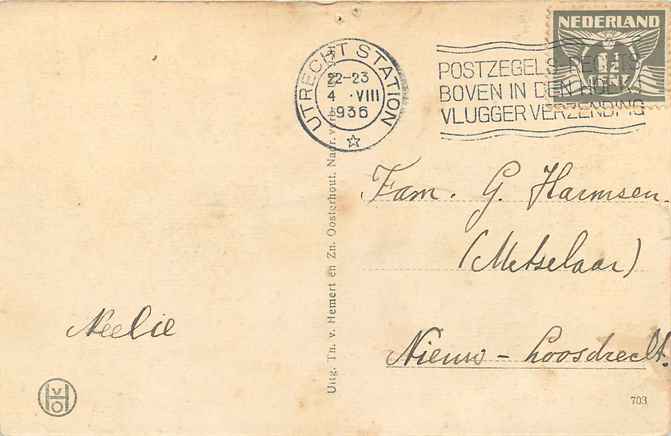 NEDERLAND
CENT
UTRECHT STATION
22-23
4 · VIII
1936
POSTZEGELS RECHTS
BOVEN IN DEN HOEK
VLUGGER VERZENDING
Fam. G. Harmsen.
(Metselaar)
Nieuw-Loosdrecht.
Neelie
Uitg. Th. v. Hemert en Zn. Oosterhout. Nadr. verb.
VHO
703